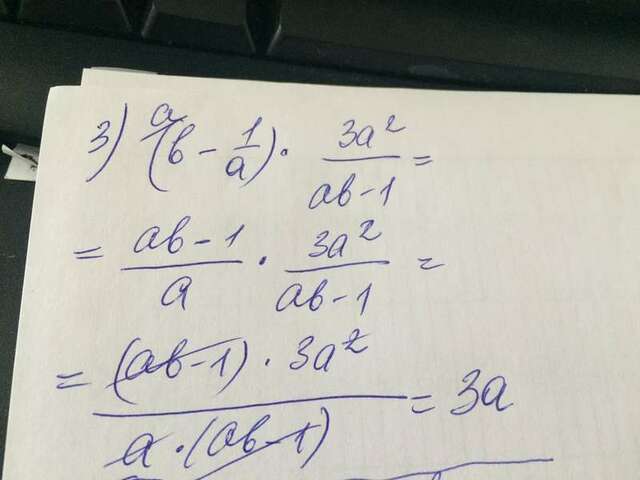 3) (b - 1/a)^a · 3a²/(ab-1) =
= (ab-1)/a · 3a²/(ab-1) =
= (ab-1) · 3a² / a · (ab-1) = 3a